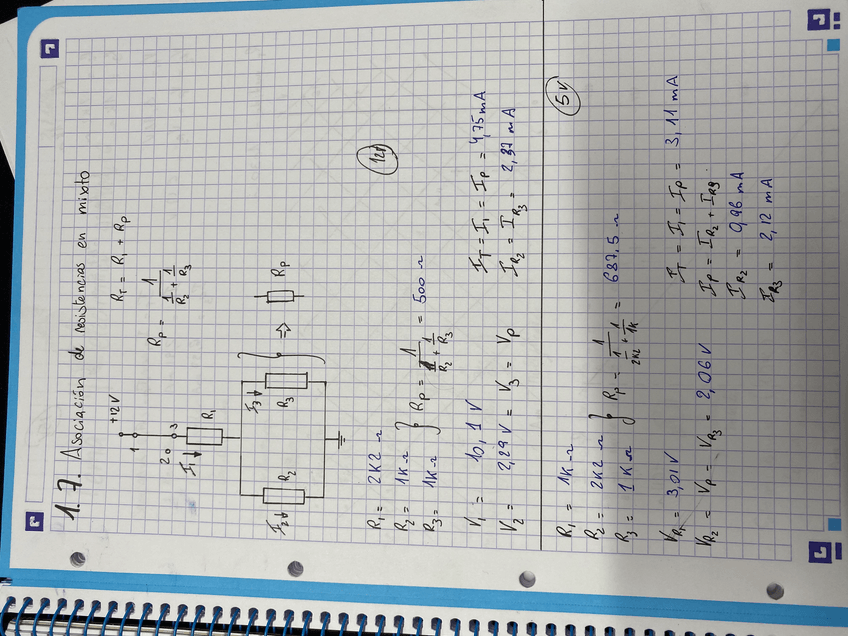 1.7. Asociación de resistencias en mixto
+12V
1
2
3
I₁
R₁
I₂
R₂
I₃
R₃
⇒
Rp
R_T = R₁ + Rp
Rp = 1 / (1/R₂ + 1/R₃)
12V
R₁ = 2K2 Ω
R₂ = 1K Ω
R₃ = 1K Ω } Rp = 1 / (1/R₂ + 1/R₃) = 500 Ω
V₁ = 10,1 V
V₂ = 2,29V = V₃ = Vp
I_T = I₁ = Ip = 4,75 mA
I_R₂ = I_R₃ = 2,37 mA
5V
R₁ = 1K Ω
R₂ = 2K2 Ω
R₃ = 1K Ω } Rp = 1 / (1/2K2 + 1/1K) = 687.5 Ω
V_R₁ = 3,01V
V_R₂ = Vp = V_R₃ = 2,06V
I_T = I₁ = Ip = 3,11 mA
Ip = I_R₂ + I_R₃
I_R₂ = 0,96 mA
I_R₃ = 2,12 mA